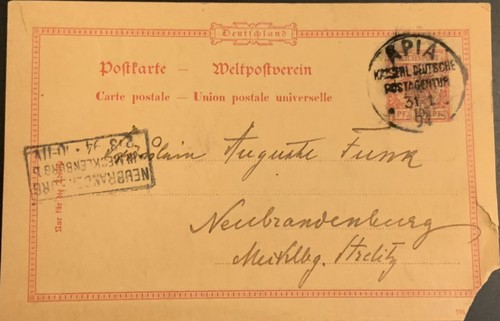 Deutschland
Postkarte — Weltpostverein
Carte postale — Union postale universelle
APIA
KAISERL. DEUTSCHE
POSTAGENTUR
31 1
94
PFENNIG
NEUBRANDENBURG
MECKLENBURG
2 3 94 · 10-11V
Fräulein Auguste Funk
Neubrandenburg
Mecklbg. Strelitz
Nur für die